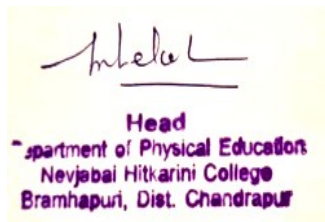 Head
epartment of Physical Education
Nevjabai Hitkarini College
Bramhapuri, Dist. Chandrapur